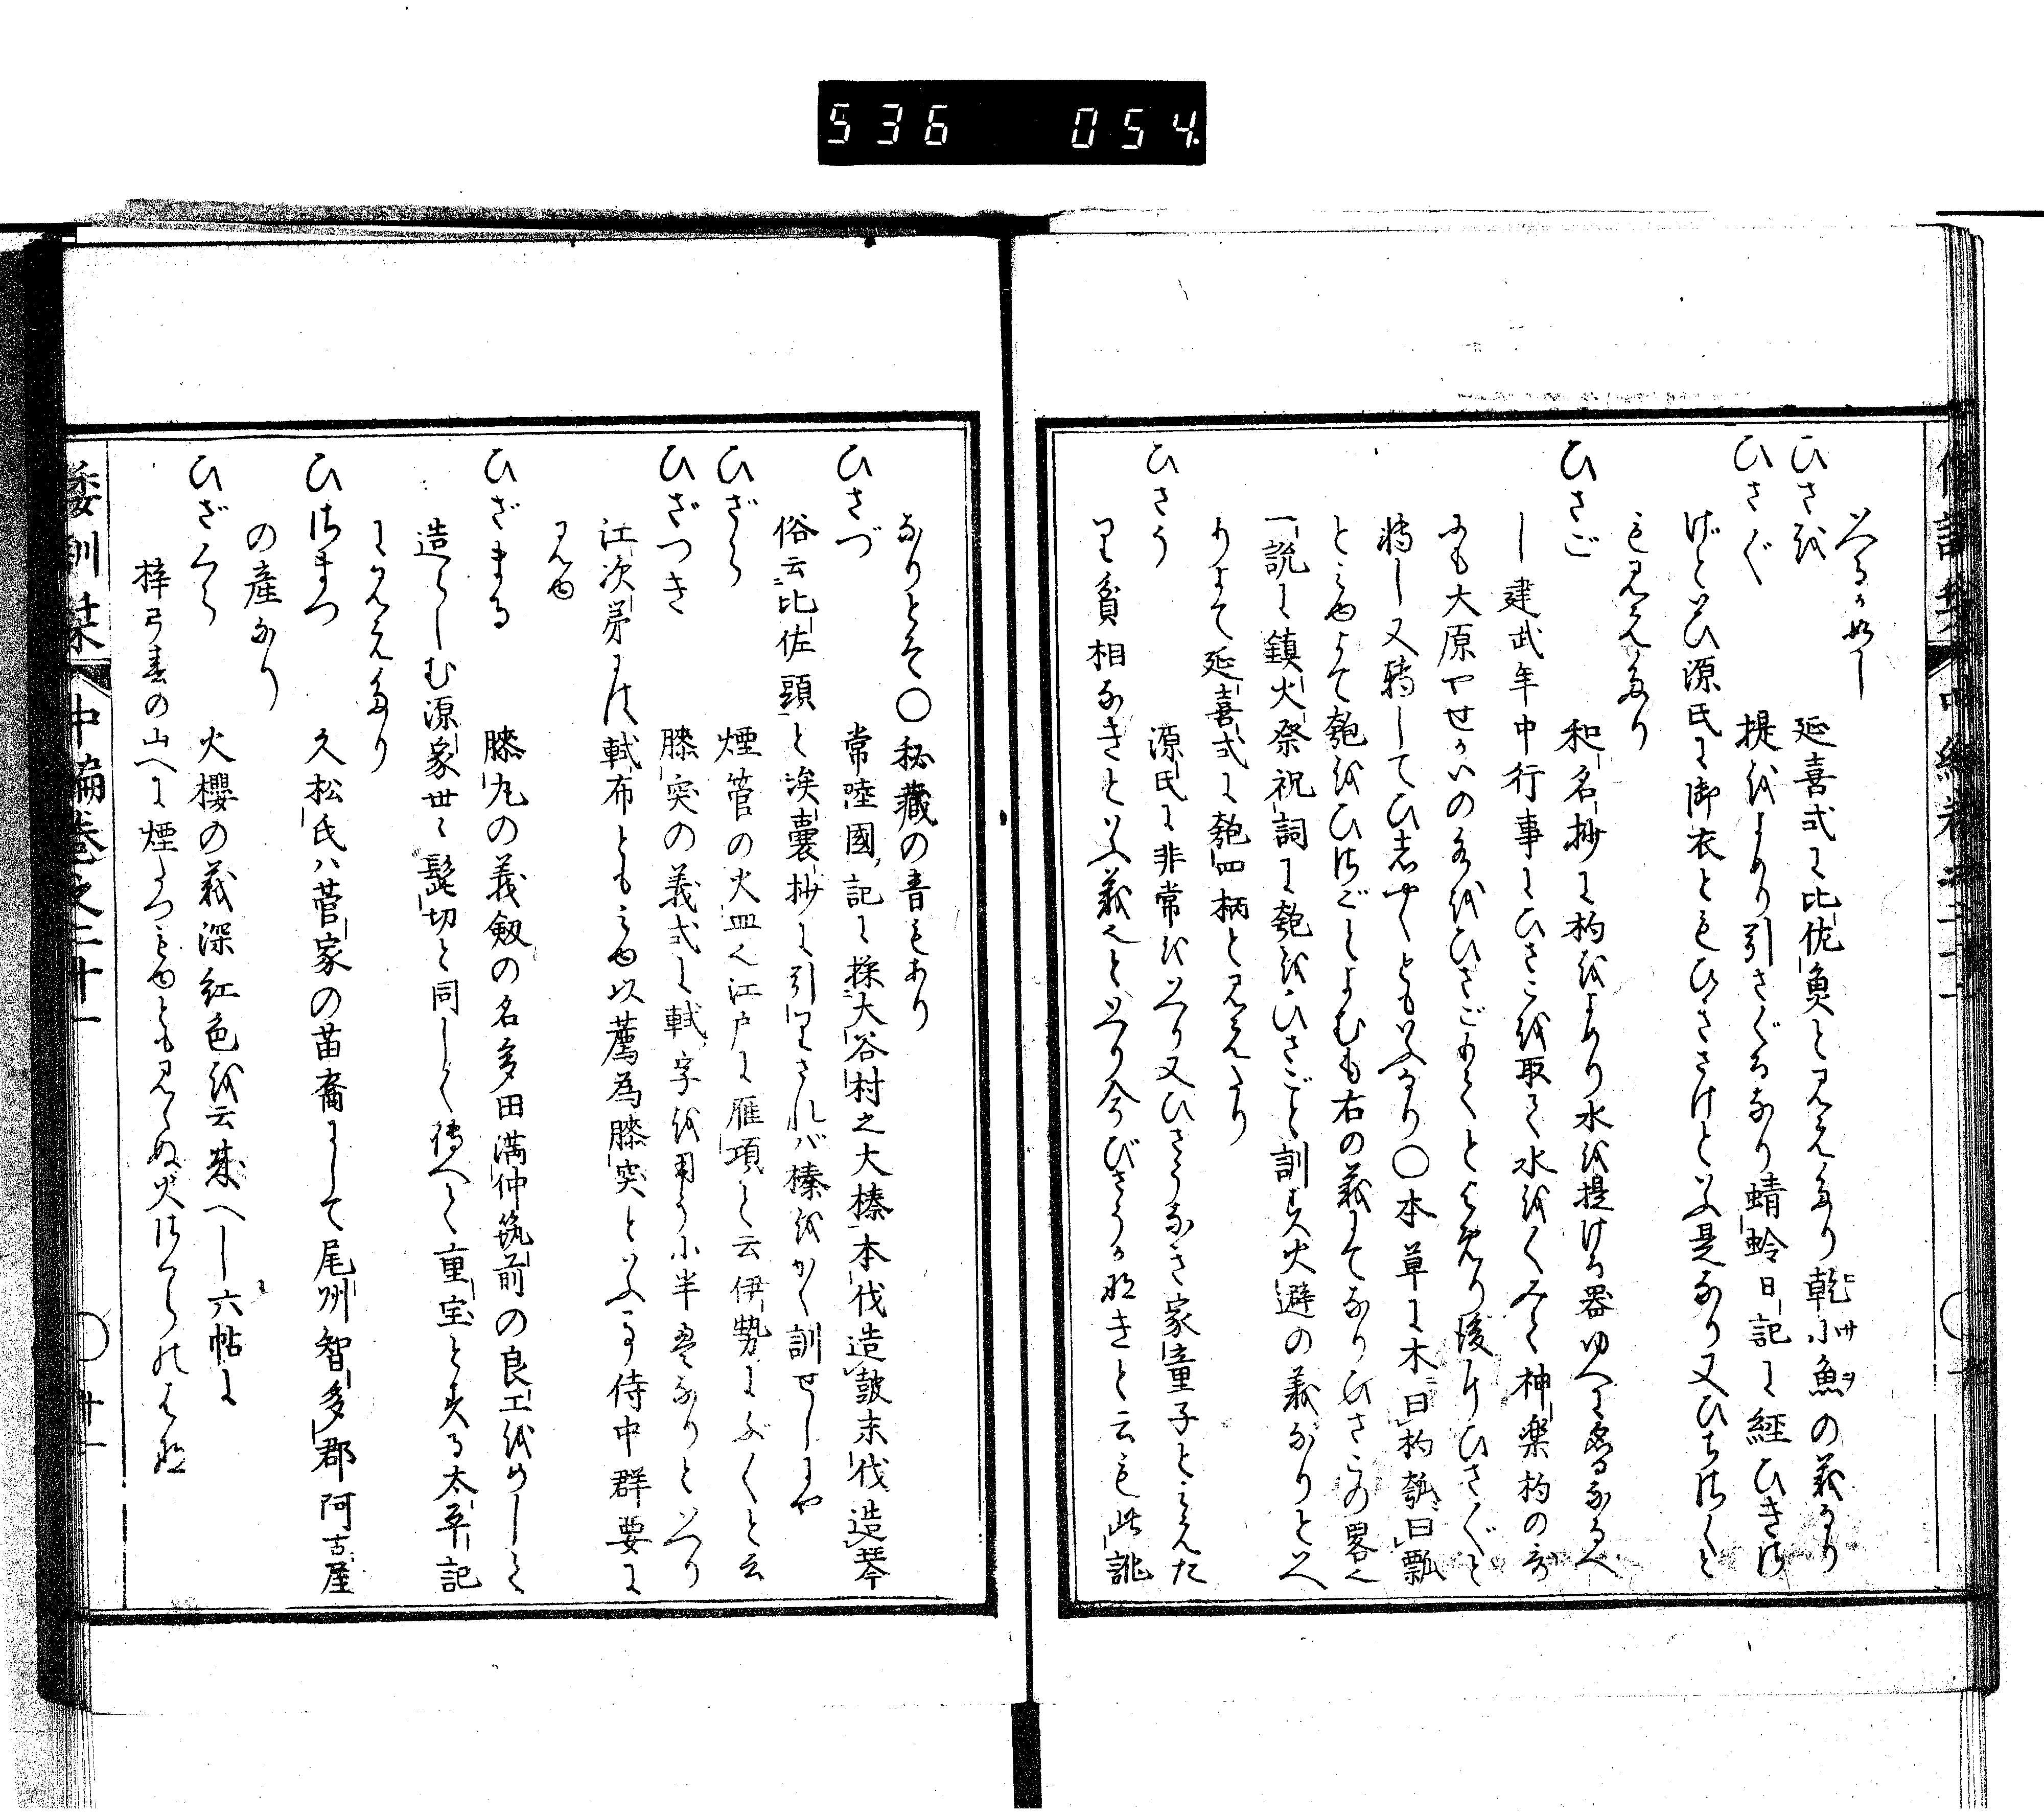 536 054
いへるか如し
ひさを 延喜式に比佐魚と見えたり乾小魚の義なり
ひさぐ 提をよめり引さぐるなり蜻蛉日記に経ひきさ
げといひ源氏に御衣ともひきさけといふ是なり又ひちさくと
も見えたり
ひさご 和名抄に杓をよめり水を提ける器ゆへに名るなるへ
し建武年中行事にひさこを取て水をくみて神楽杓の哥
にも大原やせかゐの水をひさごもてとよめり後にひさぐと
転し又転してひしやくともいふなり〇本草に木曰杓瓠曰瓢
とみゆよて匏をひさごとよむも右の義にてなりひさこの畧也
一説に鎮火祭祝詞に匏をひさごと訓す火避の義なりといへ
りよて延喜式に匏四柄と見えたり
ひさう 源氏に非常をいへり又ひさうなき家童子とみえた
り貧相なきといふ義也といへり今びさうか能きと云も此訛
なりとそ〇秘蔵の音もあり
ひさづ 常陸國記に採大谷村之大榛本伐造皷末伐造琴
俗云比佐頭と埃嚢抄に引りされバ榛をかく訓せしにや
ひざら 煙管の火皿也江戸に雁項と云伊勢にがくと云
ひざつき 膝突の義式に軾字を用う小半畳なりといへり
江次第には軾布ともみゆ以薦為膝突といふ事侍中群要に
見ゆ
ひざまる 膝丸の義剱の名多田満仲筑前の良工をめして
造らしむ源家世々髭切と同しく傳へて重宝とする太平記
に見えたり
ひさまつ 久松氏ハ菅家の苗裔にして尾州智多郡阿古屋
の産なり
ひざくら 火櫻の義深紅色を云成へし六帖に
梓弓春の山へに煙たつもゆとも見えぬ火さくらのはな
倭訓栞 中編巻之二十一 〇 廿一